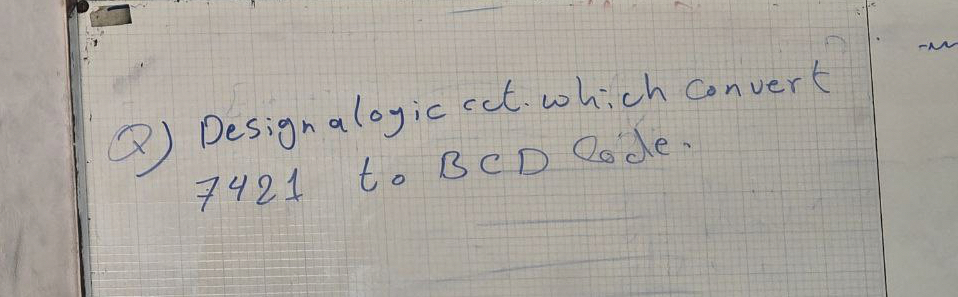 Q) Design a logic cct. which convert
7421 to BCD Code.